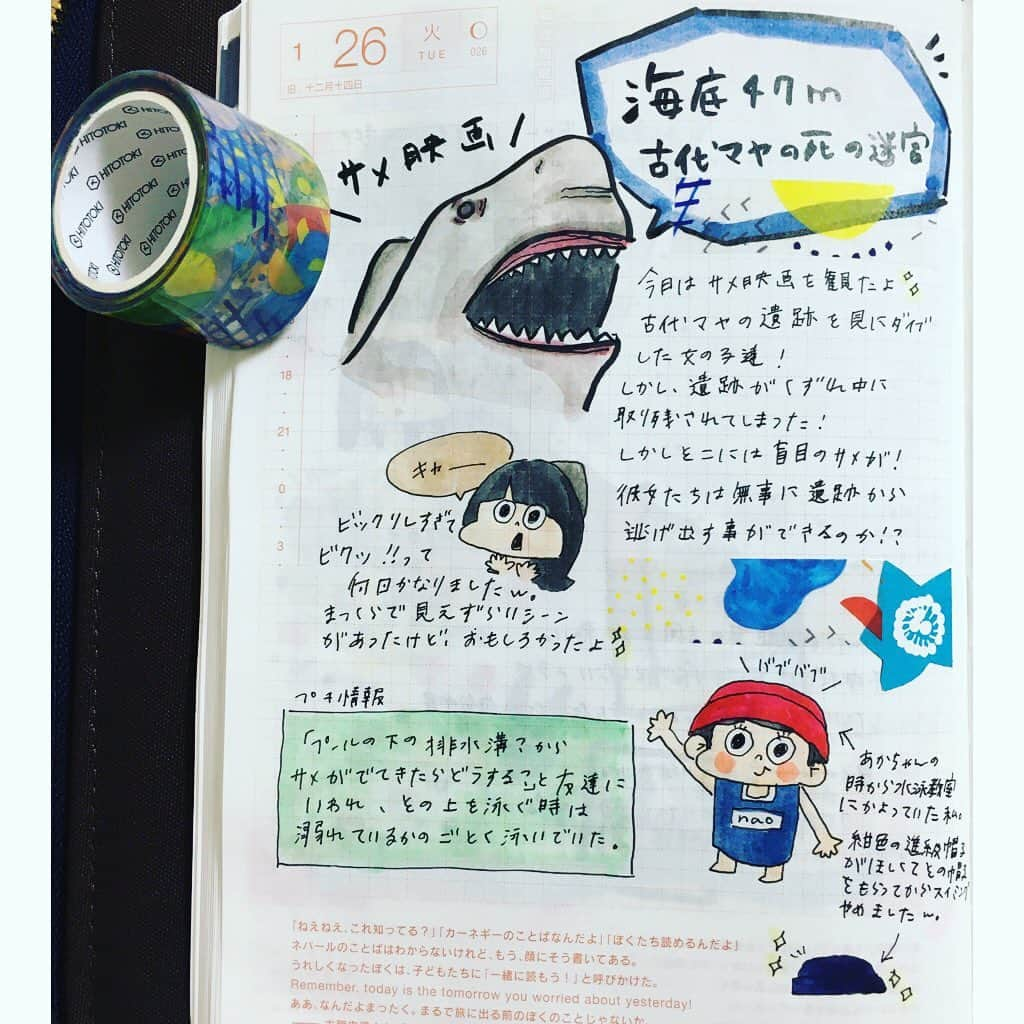 1 26 火
TUE 026
旧. 十二月十四日
HITOTOKI
HITOTOKI
HITOTOKI
HITOTOKI
HITOTOKI
サメ映画
海底47m
古代マヤの死の迷宮
今日はサメ映画を観たよ
古代マヤの遺跡を見にダイブ
した女の子達!
しかし、遺跡がくずれ中に
取り残されてしまった!
しかしそこには盲目のサメが!
彼女たちは無事に遺跡から
逃げ出す事ができるのか!?
18
21
0
3
キャー
ビックリしすぎて
ビクッ!!って
何回かなりましたw。
まっくらで見えずらいシーン
があったけど、おもしろかったよ
プチ情報
「プールの下の排水溝?から
サメがでてきたらどうする」と友達に
いわれ、その上を泳ぐ時は
溺れているかのごとく泳いでいた。
バブバブ
nao
あかちゃんの
時から水泳教室
にかよっていた私。
紺色の進級帽子
がほしくてその帽子
をもらってからスイミング
やめましたw。
「ねえねえ、これ知ってる?」「カーネギーのことばなんだよ」「ぼくたち読めるんだよ」
ネパールのことばはわからないけれど、もう、顔にそう書いてある。
うれしくなったぼくは、子どもたちに「一緒に読もう!」と呼びかけた。
Remember, today is the tomorrow you worried about yesterday!
ああ、なんだよまったく。まるで旅に出る前のぼくのことじゃないか。